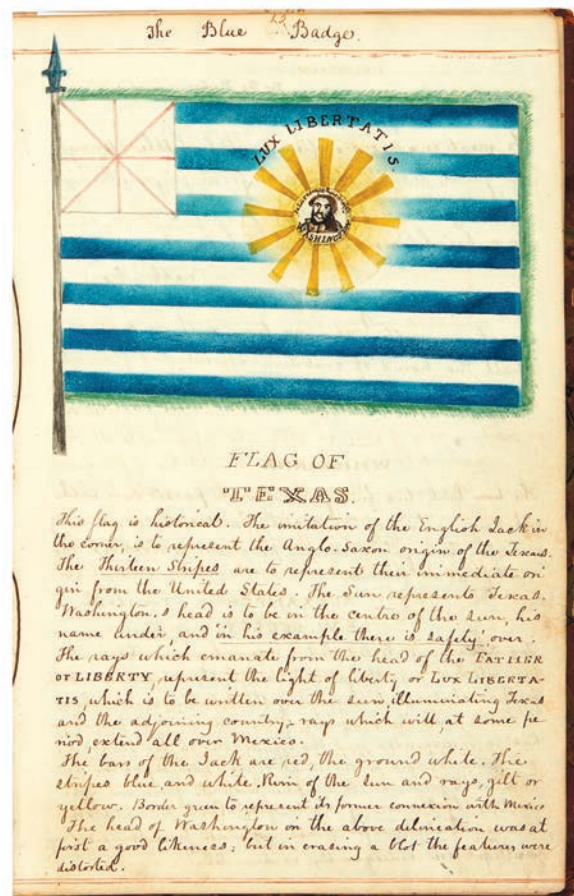 23
The Blue Badge.
LUX LIBERTATIS.
WASHINGTON
FLAG OF
TEXAS.
This flag is historical. The imitation of the English Jack in
the corner, is to represent the Anglo-Saxon origin of the Texans.
The Thirteen Stripes are to represent their immediate ori
gin from the United States. The Sun represents Texas.
Washington,s head is to be in the centre of the sun, his
name under, and 'in his example there is safety' over.
The rays which emanate from the head of the FATHER
OF LIBERTY, represent the light of liberty or LUX LIBERTA-
TIS, which is to be written over the sun, illuminating Texas
and the adjoining country,- rays which will, at some pe
riod, extend all over Mexico.
The bars of the Jack are red, the ground white. The
stripes blue, and white. Rim of the sun and rays, gilt or
yellow. Border green to represent its former connexion with Mexico
The head of Washington on the above delineation was at
first a good likeness; but in erasing a blot the features were
distorted.